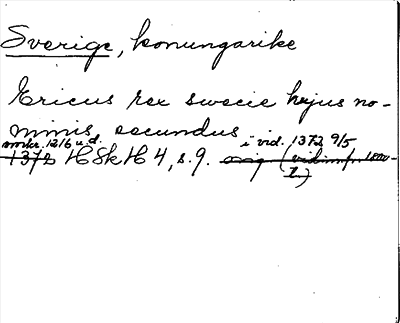 Sverige, konungarike
Ericus rex swecie hujus no-
minis secundus
omkr. 1216 u.d. i vid. 1372 9/5
1372 HSkH 4, s. 9. orig (vidim.